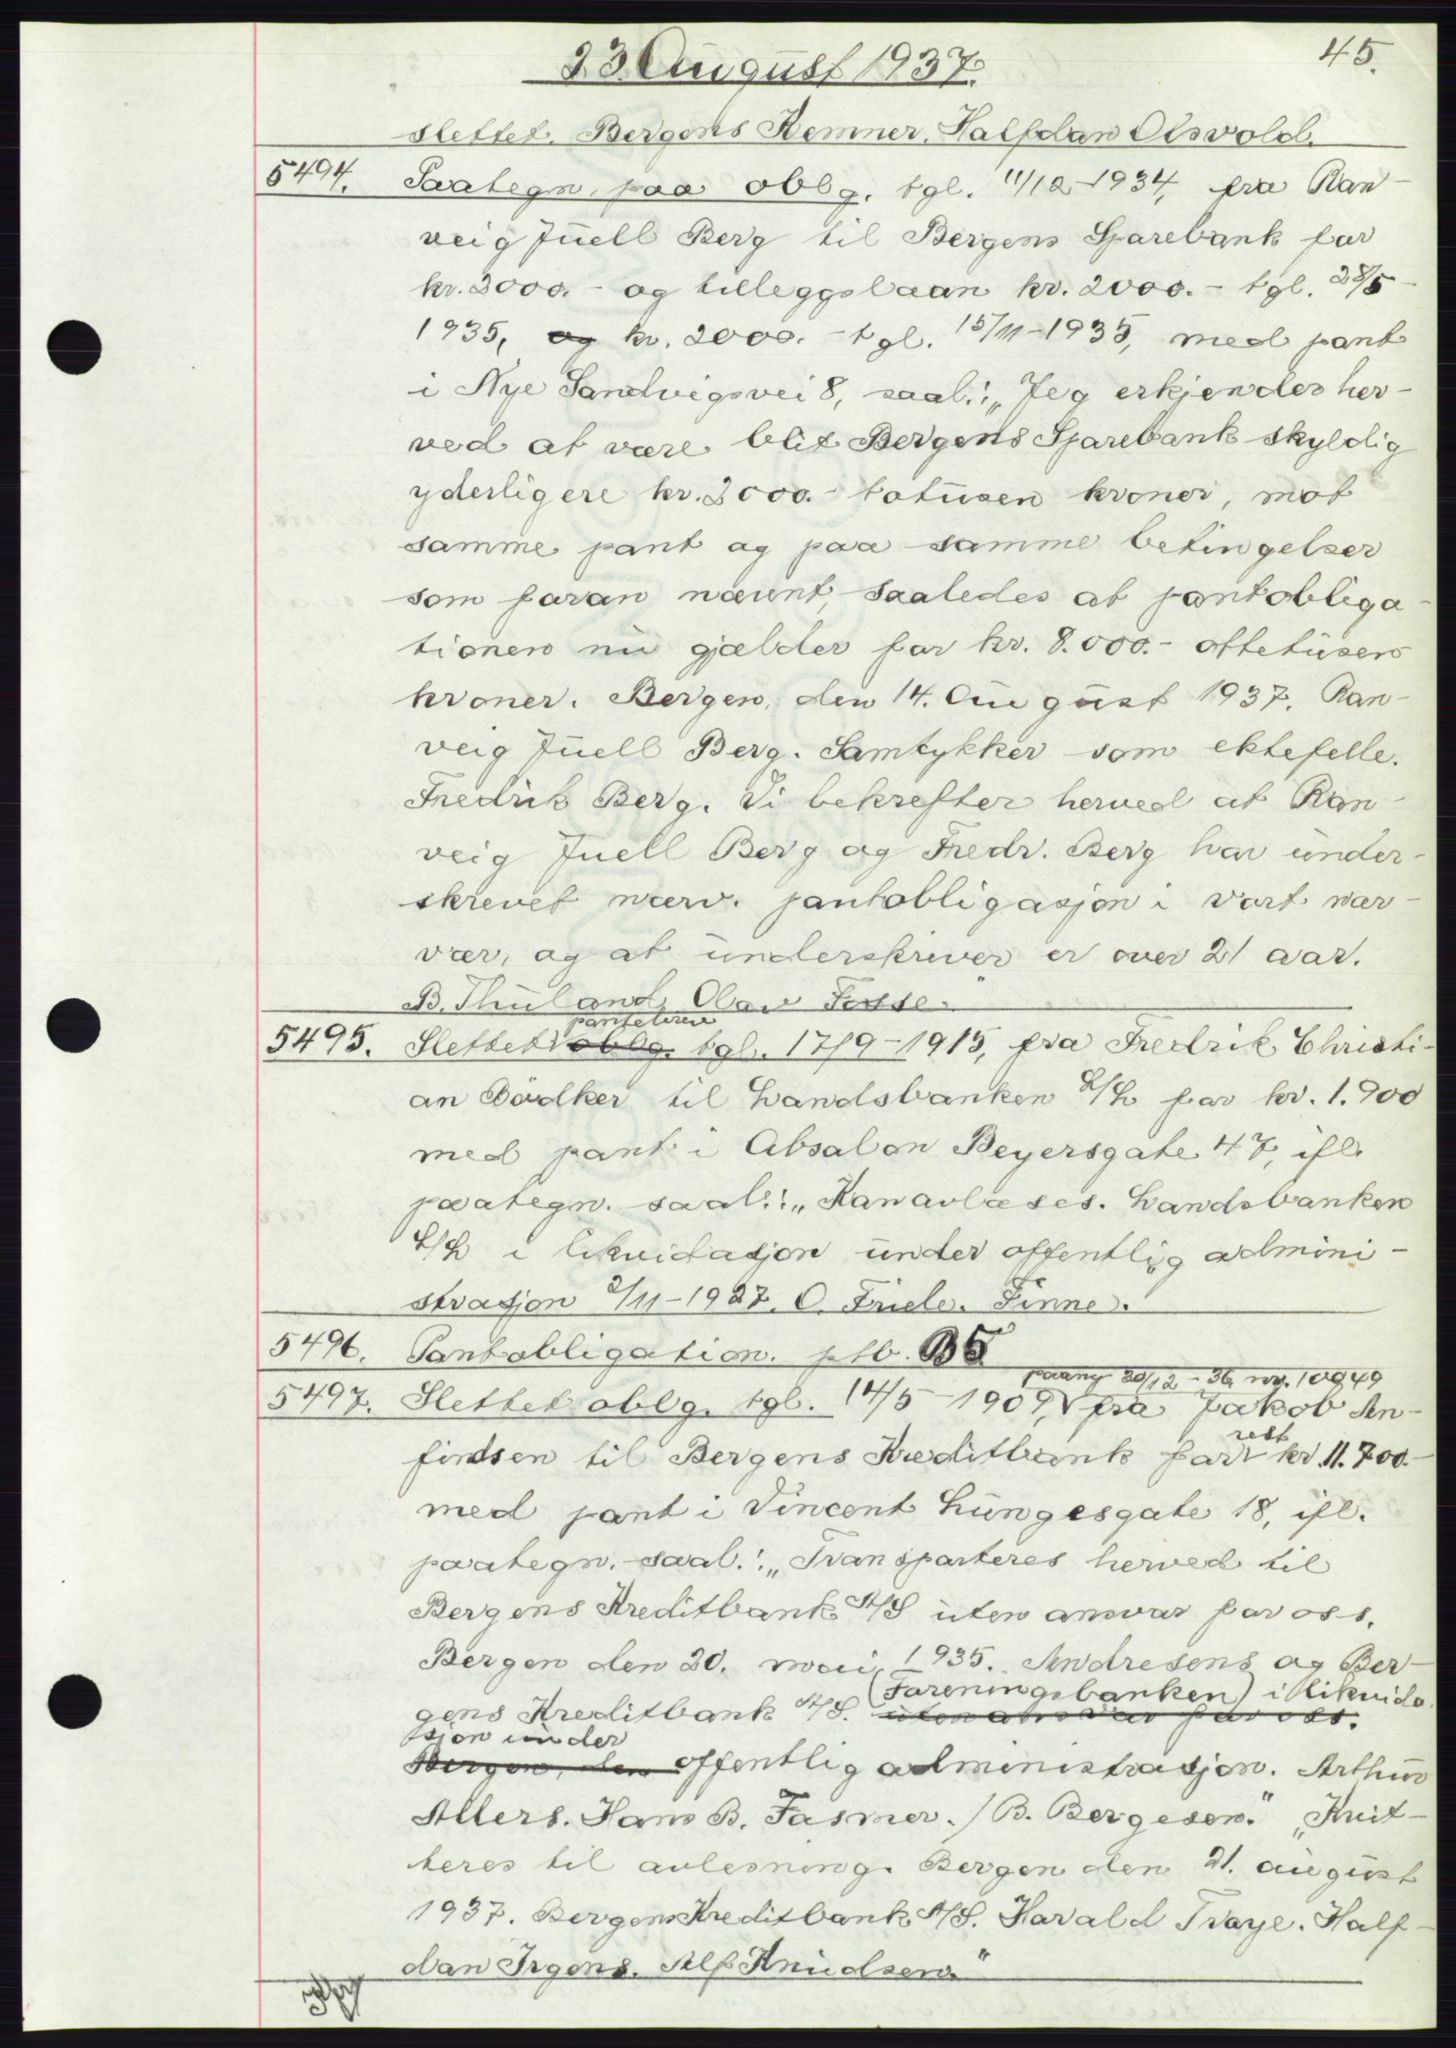 23 August 1937.
45.
slettet. Bergens Kemner. Halfdan Olsvold.
5494. Paategn. paa oblg. tgl. 11/12-1934, fra Ran-
veig Juell Berg til Bergens Sparebank for
kr. 2000.- og tilleggslaan kr. 2000.- tgl. 28/5-
1935, og kr. 2000.- tgl. 15/11-1935, med pant
i Nye Sandvigsvei 8, saal.: „Jeg erkjender her-
ved at være blit Bergens Sparebank skyldig
yderligere kr. 2000.- totusen kroner, mot
samme pant og paa samme betingelser
som foran nævnt, saaledes at pantobliga-
tionen nu gjælder for kr. 8.000.- ottetusen
kroner. Bergen, den 14. August 1937. Ran-
veig Juell Berg. Samtykker som ektefelle.
Fredrik Berg. Vi bekrefter herved at Ran-
veig Juell Berg og Fredr. Berg har under-
skrevet nærv. pantobligasjon i vort nær-
vær, og at underskriver er over 21 aar.
B. Thuland. Olav Fosse.
panteloven
5495. Slettet oblg. tgl. 17/9-1915, fra Fredrik Christi-
an Bödker til Landsbanken A/S for kr. 1.900
med pant i Absalon Beyersgate 47, ifl.
paategn. saal.: „Kan avlæses. Landsbanken
A/S i likvidasjon under offentlig admini-
strasjon 2/11-1927. C. Friele. Finne.
5496. Pantobligation. ptb. B5
paany 30/12-36 nr. 10949
5497. Slettet oblg. tgl. 14/5-1909, fra Jakob An-
rest
findsen til Bergens Kreditbank for kr. 11.700.-
med pant i Vincent Lungesgate 18, ifl.
paategn. saal.: „Transporteres herved til
Bergens Kreditbank A/S uten ansvar for oss.
Bergen den 20. mai 1935. Andresens og Ber-
(Foreningsbanken) i likvida-
gens Kreditbank A/S. uten ansvar for oss.
sjon under
Bergen, den offentlig administrasjon. Arthur
Allers. Hans B. Fasmer. / B. Bergesen." „Kvit-
teres til avlesning. Bergen den 21. august
1937. Bergens Kreditbank A/S. Harald Traye. Half-
dan Irgens. Alf Knudsen."